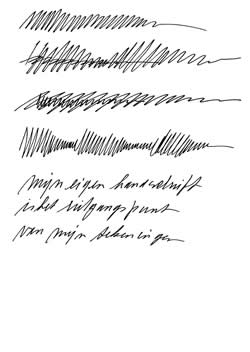 mijn eigen handschrift
is het uitgangspunt
van mijn tekeningen